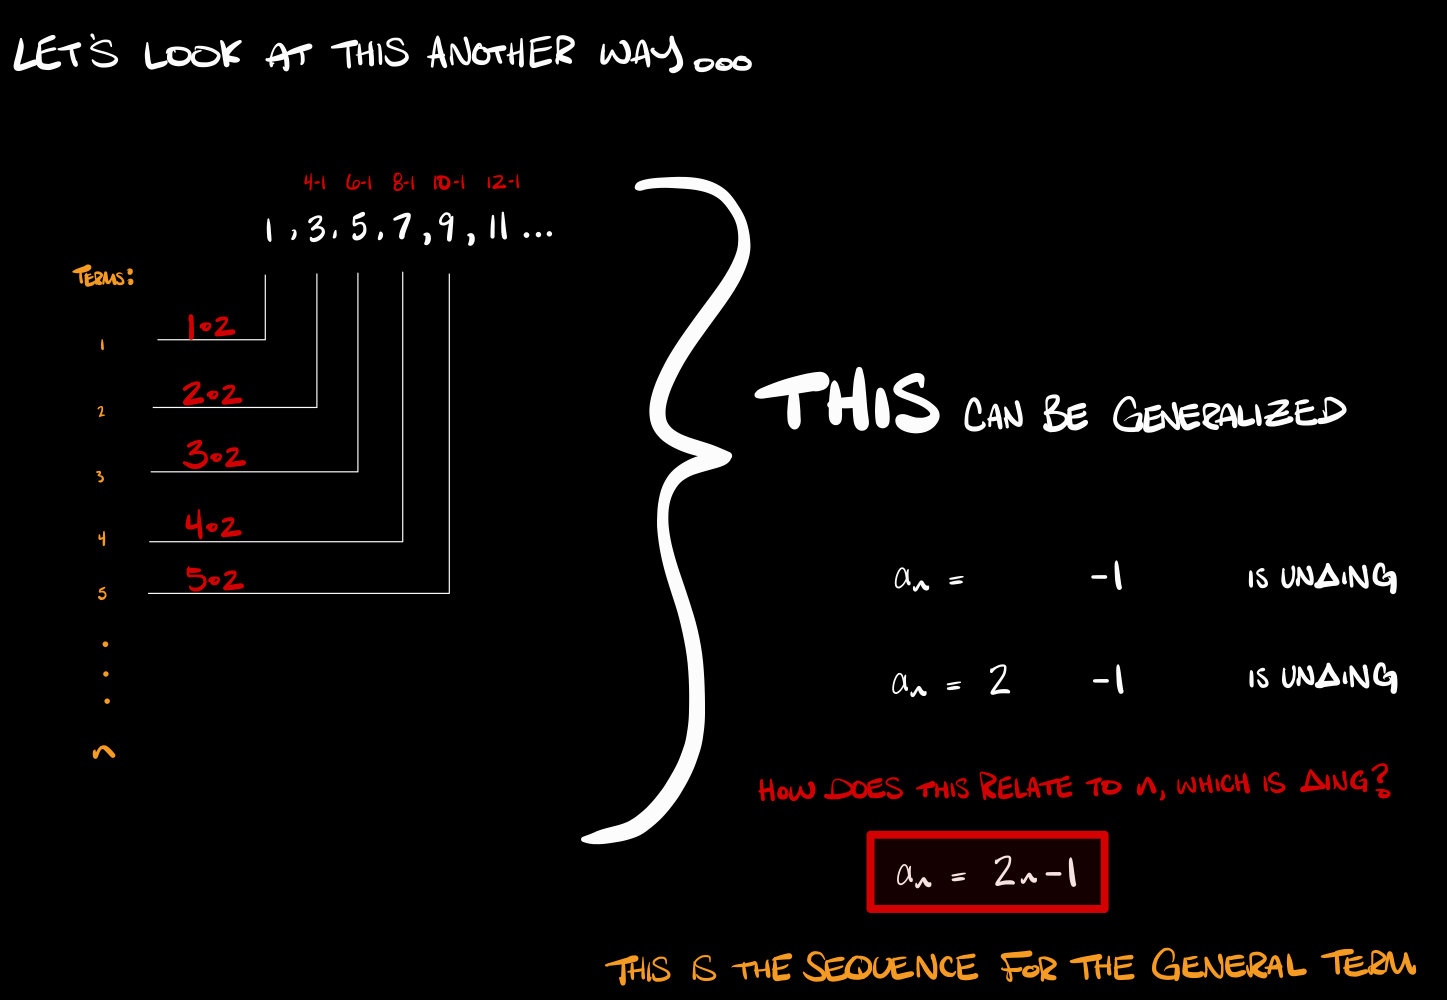 LET'S LOOK AT THIS ANOTHER WAY...
4-1 6-1 8-1 10-1 12-1
1, 3, 5, 7, 9, 11...
TERMS:
1 1•2
2 2•2
3 3•2
4 4•2
5 5•2
.
.
.
n
THIS CAN BE GENERALIZED
aₙ = -1 IS UNΔING
aₙ = 2 -1 IS UNΔING
HOW DOES THIS RELATE TO n, WHICH IS ΔING?
aₙ = 2n-1
THIS IS THE SEQUENCE FOR THE GENERAL TERM